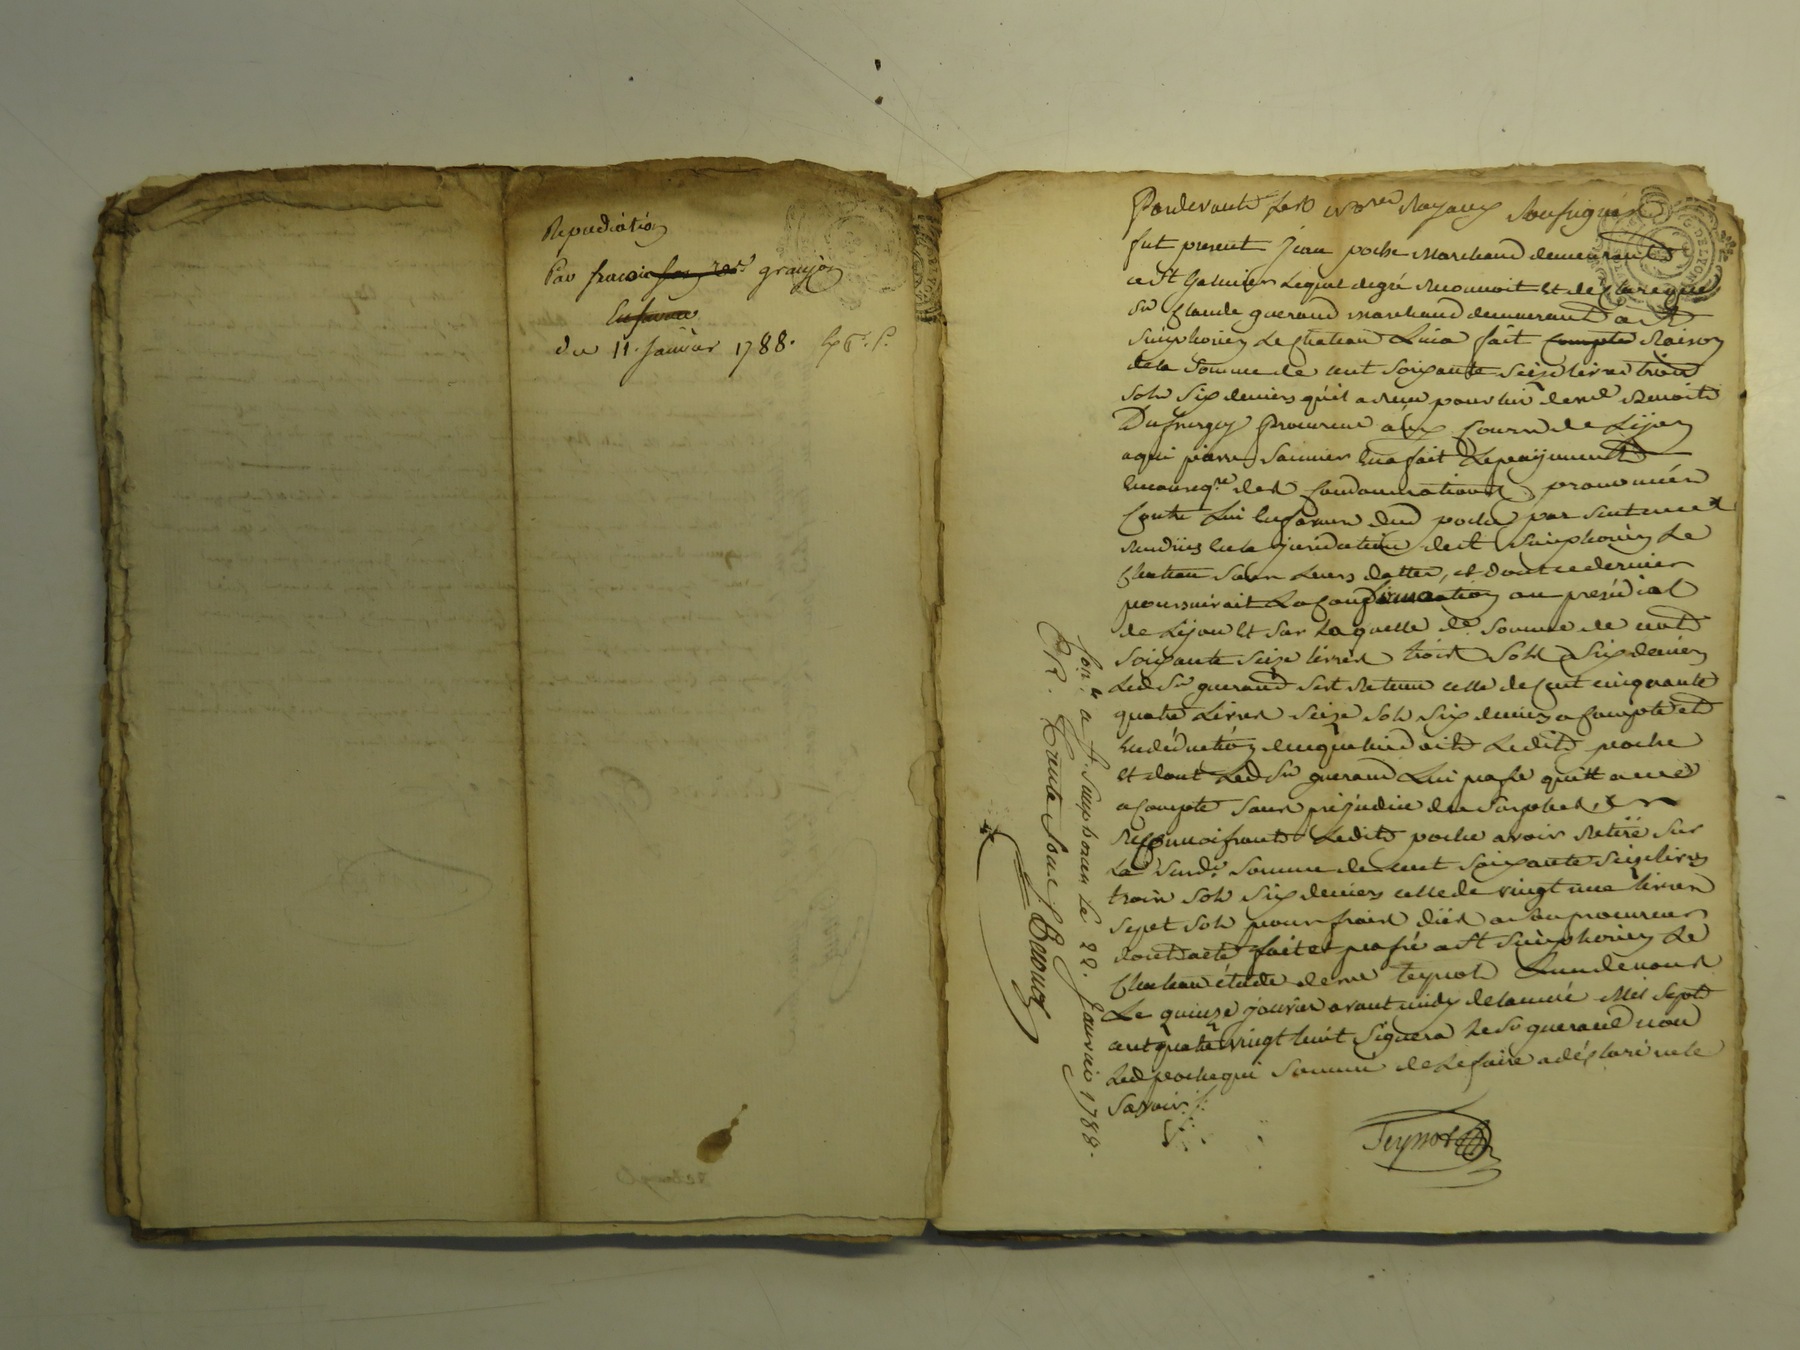 Repudiation
Par francois granjon
En faveur
du 11. Janvier 1788.
Pardevant les nores Royaux Soussignés
fut present jean poche Marchand demeurant
a St Galmier Lequel degré Reconnoit et declare que
sr Claude guerand marchand demeurant a St
Simphorien Le Chateau Lui a fait compte Raison
dela Somme de cent Soixante Seize livres trois
Sols Six deniers qu'il a reçu pour lui de me Benoit
Dufreney Procureur aux Cours de Lÿon
a qui pierre Saunier En a fait Le paÿement
En conseqce des Condamnations prononcées
Contre Lui En faveur dud poche par Sentences
Rendües En la juridiction de St Simphorien Le
Chateau Sous Leurs dattes, et dont ce dernier
poursuivait La Confirmation au presidial
de Lÿon et Sur Laquelle de Somme de cent
Soixante Seize livres trois Sols Six deniers
Led Sr guerand Sest Retenu celle de Cent cinquante
quatre Livres Seize Sols Six deniers a Compte et
En déduction de ce que lui doit Ledit poche
et dont Led Sr guerand Lui passe quittance
a Compte Sans préjudice du Surplus,
Reconnoissant Ledit poche avoir Retiré Sur
La Susde Somme de Cent Soixante Seize livres
trois Sols Six deniers celle de vingt une livres
Sept Sols pour frais dües a Son procureur
dont acte fait et passé a St Simphorien Le
Chateau étude de me Teynot L'un de nous
Le quinze janvier avant midy de l'année Mil Sept
cent quatre vingt huit Signera Le Sr guerand non
Led poche qui Sommé de Le faire a déclaré ne le
Savoir
Teynot
Con. le a St. Simphorien Le 22. Janvier 1788.
R. Trente Sous